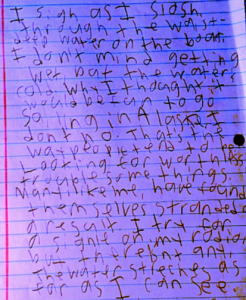 I sigh as I slosh
through the waist-
deep water on the boat.
I don't mind getting
wet, but the waters
cold. Why I thought it
would be fun to go
sailing in Alaska I
don't no. That's the
way people tend to be
Looking for worth
trouple some things.
Many like me, have found
them selves stranded
a result. I try for
a signle on my radio
but ther
the water streches as
far as I can see